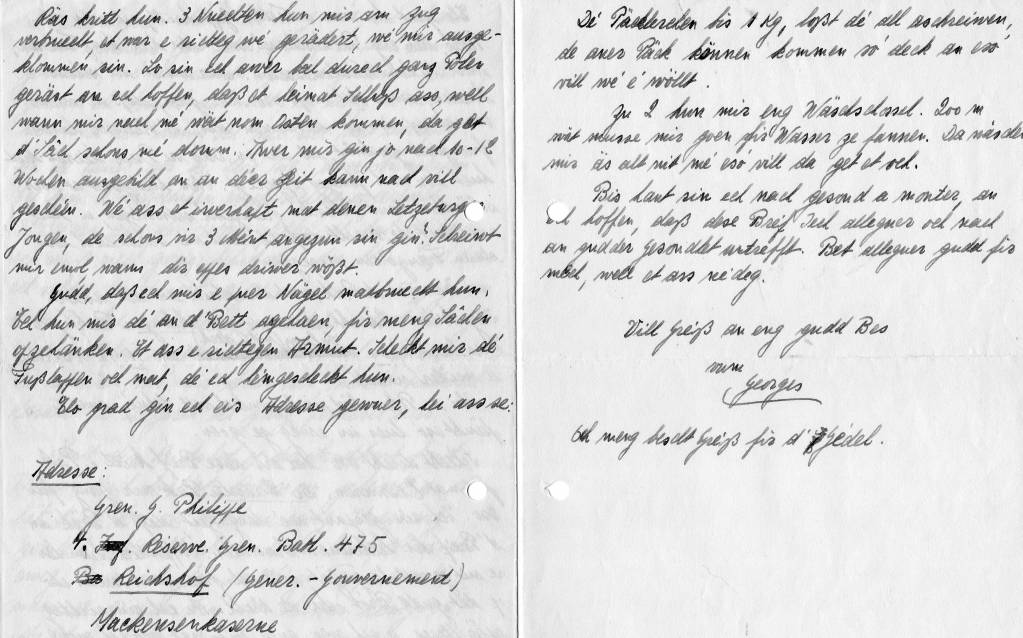 Räs kritt hun. 3 Nuechten hun mir am Zug
verbruecht et war e richteg wé gerädert, wé mir ausge-
klommen sin. So sin ech awer bal duerch ganz Polen
geräst an ech hoffen, daß et heimat Schluß ass, well
wann mir nach mé wäit nom Osten kommen, da gët
d'Säch schons mé domm. Awer mir gin jo nach 10-12
Wochen ausgebild an an dëer Zeit kann nach vill
geschéin. Wé ass et iwerhapt mat denen Letzeburger
Jongen, dé schons vir 3 Mént angezun sin gin? Schreiwt
mir emol wann dir eppes driwer wößt.
Gudd, daß ech mir e puer Nägel matbruecht hun.
Ech hun mir dé an d'Bett geschloen, fir meng Sächen
opzehänken. Et ass e richtegen Armut. Schéckt mir dé
Fußlappen och mat, dé ech heemgeschéckt hun.
Elo grad gin ech eis Adresse gewuer, hei ass se:
Adresse:
Gren. G. Philippe
4. Reserve. Gren. Batl. 475
Reichshof (Gener.-Gouvernement)
Mackensenkaserne
Dé Päckercher bis 1 Kg, loßt dé all aschreiwen,
de aner Päck können kommen so' déck an eso'
vill wé é wöllt.
Zu 2 hun mir eng Wäschschossel. 200 m
wäit musse mir goen fir Wasser ze fannen. Da wäschen
mir äs alt nit mé eso' vill da get et och.
Bis haut sin ech nach gesond a monter, an
ech hoffen, daß dese Bréf Iech alleguer och nach
an gudder Gesondhét utrefft. Bet alleguer gudd fir
mech, well et ass né'deg.
Vill Gréiß an eng gudd Bes
vum
Georges
Och meng bescht Gréiß fir d' Jédel.